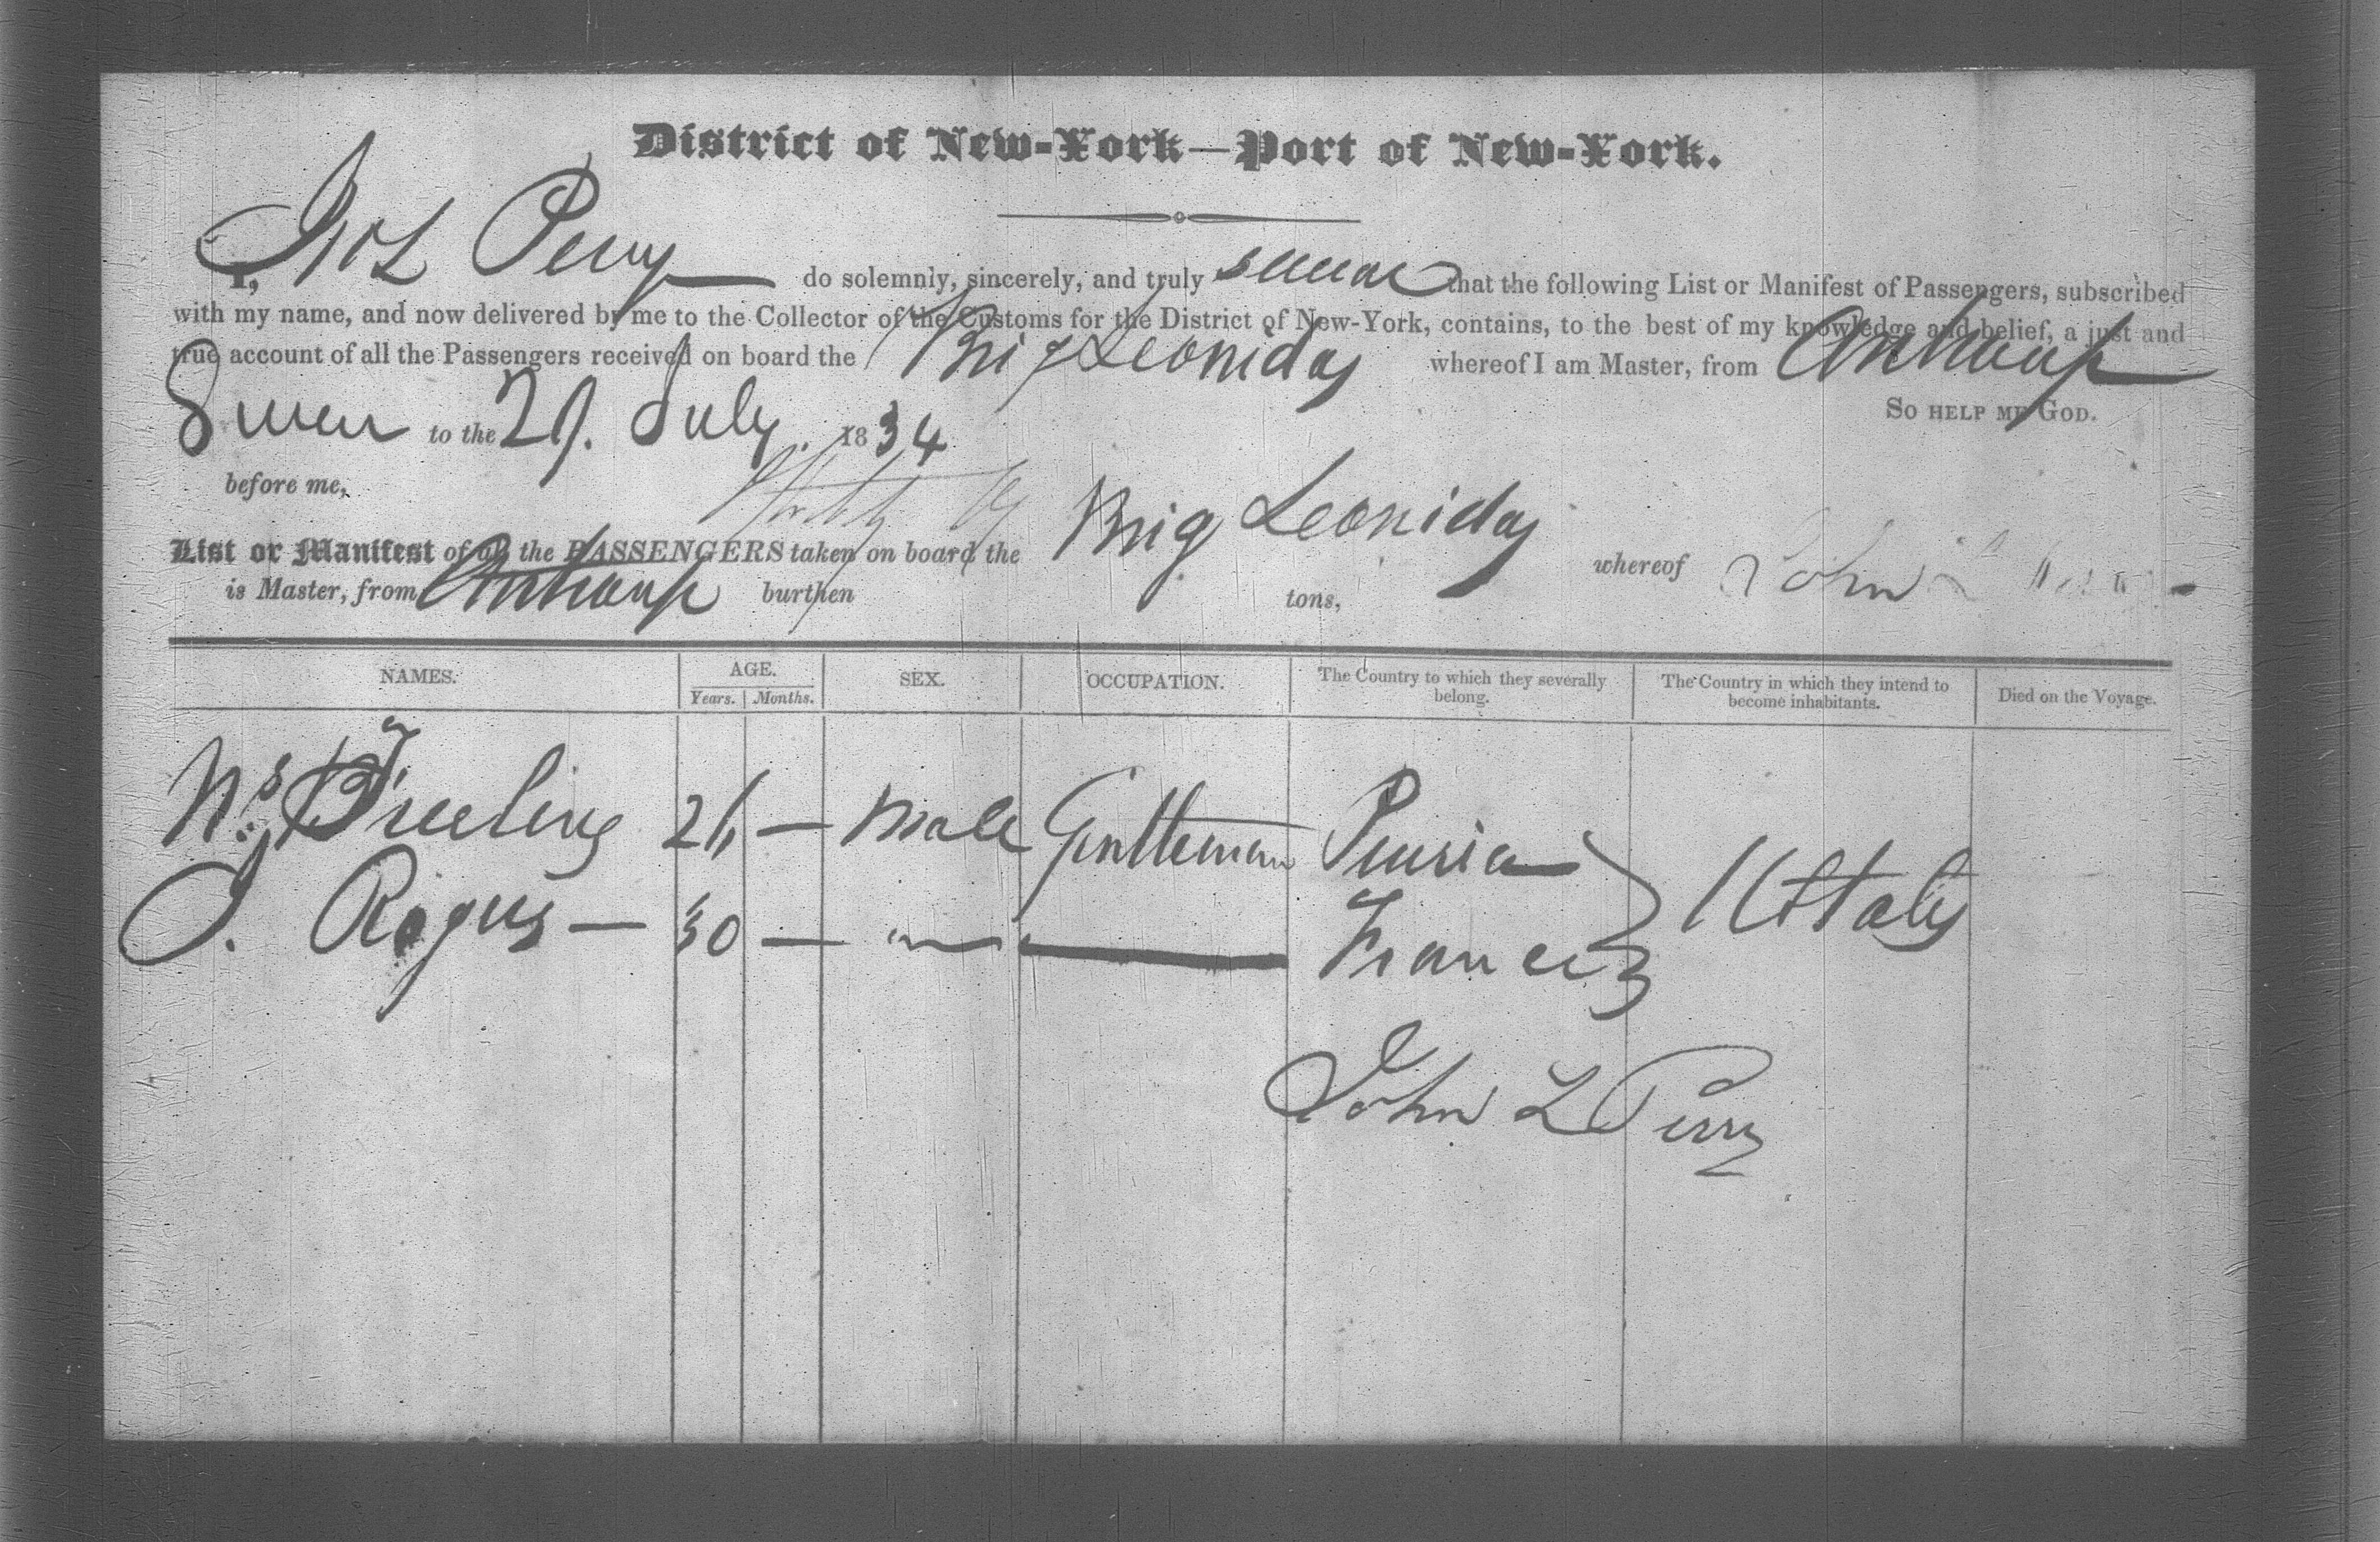 District of New-York—Port of New-York.
I, Jno L Perry do solemnly, sincerely, and truly swear that the following List or Manifest of Passengers, subscribed
with my name, and now delivered by me to the Collector of the Customs for the District of New-York, contains, to the best of my knowledge and belief, a just and
true account of all the Passengers received on board the Brig Leonidas whereof I am Master, from Antwerp
So help me God.
Sworn to the 29. July 1834
before me,
List or Manifest of all the PASSENGERS taken on board the Brig Leonidas whereof John L
is Master, from Antwerp burthen tons,
NAMES. AGE. SEX. OCCUPATION. The Country to which they severally belong. The Country in which they intend to become inhabitants. Died on the Voyage.
Years. Months.
26 — Male Gentleman Prussia
30 — France
U States
John L Perry